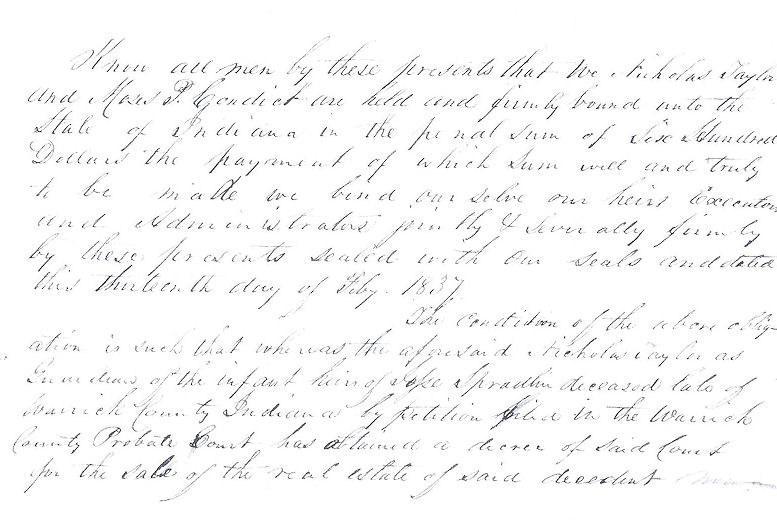 Know all men by these presents that We Nicholas Taylor
and Moses P. Condict are held and firmly bound unto the
State of Indiana in the penal sum of Six Hundred
Dollars the payment of which sum well and truly
to be made we bind our selve our heirs Executors
and Administrators jointly & severally firmly
by these presents sealed with our seals and dated
this thirteenth day of Feby. 1837.
The condition of the above oblig-
ation is such that whereas the aforesaid Nicholas Taylor as
Guardian of the infant heirs of Spradlin deceased late of
Warrick County Indiana by petition filed in the Warrick
County Probate Court has obtained a decree of said Court
for the sale of the real estate of said decedent